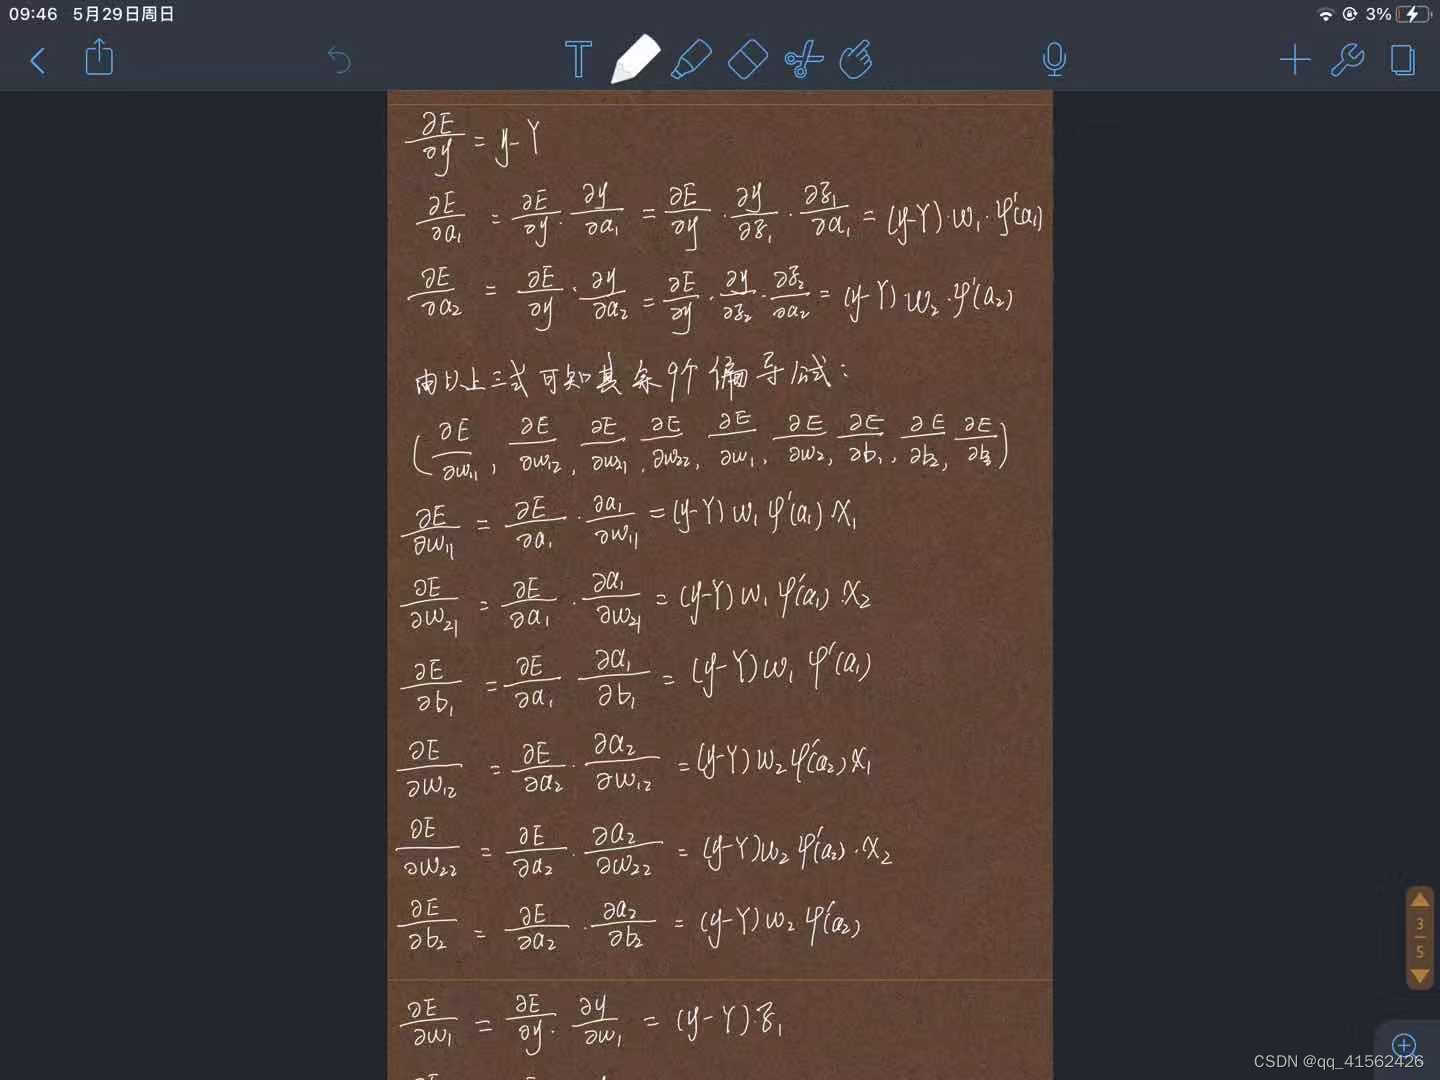 09:46 5月29日周日 3%
T
∂E/∂y = y-Y
∂E/∂a₁ = ∂E/∂y · ∂y/∂a₁ = ∂E/∂y · ∂y/∂z₁ · ∂z₁/∂a₁ = (y-Y)·w₁·φ'(a₁)
∂E/∂a₂ = ∂E/∂y · ∂y/∂a₂ = ∂E/∂y · ∂y/∂z₂ · ∂z₂/∂a₂ = (y-Y) w₂·φ'(a₂)
由以上三式可知其余9个偏导公式:
(∂E/∂w₁₁, ∂E/∂w₁₂, ∂E/∂w₂₁, ∂E/∂w₂₂, ∂E/∂w₁, ∂E/∂w₂, ∂E/∂b₁, ∂E/∂b₂, ∂E/∂b₃)
∂E/∂w₁₁ = ∂E/∂a₁ · ∂a₁/∂w₁₁ = (y-Y) w₁ φ'(a₁)·X₁
∂E/∂w₂₁ = ∂E/∂a₁ · ∂a₁/∂w₂₁ = (y-Y) w₁ φ'(a₁)·X₂
∂E/∂b₁ = ∂E/∂a₁ ∂a₁/∂b₁ = (y-Y) w₁ φ'(a₁)
∂E/∂w₁₂ = ∂E/∂a₂ · ∂a₂/∂w₁₂ = (y-Y) w₂ φ'(a₂) X₁
∂E/∂w₂₂ = ∂E/∂a₂ · ∂a₂/∂w₂₂ = (y-Y) w₂ φ'(a₂)·X₂
∂E/∂b₂ = ∂E/∂a₂ · ∂a₂/∂b₂ = (y-Y) w₂ φ'(a₂)
3
5
∂E/∂w₁ = ∂E/∂y · ∂y/∂w₁ = (y-Y)·z₁
CSDN @qq_41562426